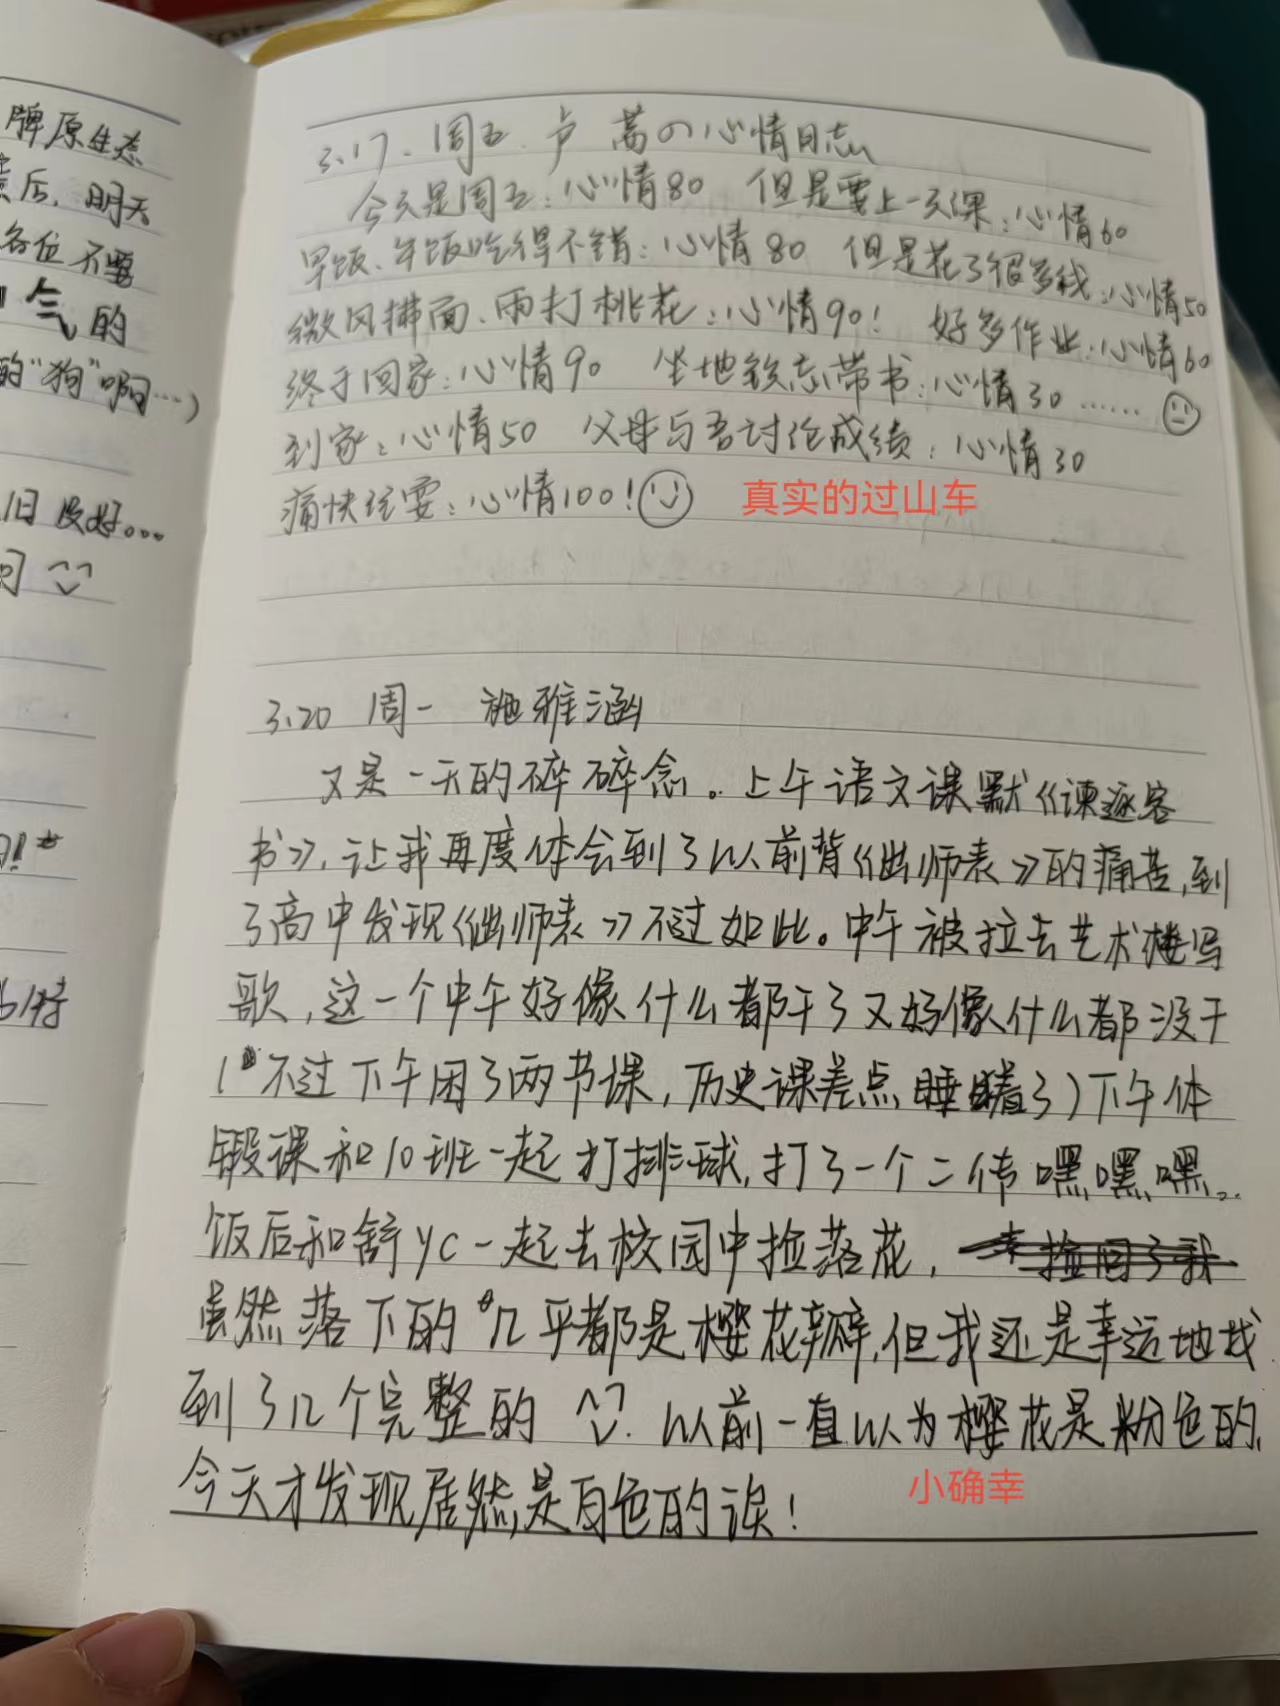 牌原生态
后,明天
各位不要
气的
的“狗”啊…)
旧没好。。。
3.17、周五、卢 蒿の心情日志
今天是周五:心情80 但是要上一天课:心情60
早饭、午饭吃得不错:心情80 但是花了很多钱:心情50
微风拂面、雨打桃花:心情90! 好多作业:心情60
终于回家:心情90 坐地铁忘带书:心情30……
到家:心情50 父母与吾讨论成绩:心情30
痛快玩耍:心情100!
真实的过山车
3.20 周一 施雅涵
又是一天的碎碎念。上午语文课默《谏逐客
书》,让我再度体会到了以前背《出师表》的痛苦,到
了高中发现《出师表》不过如此。中午被拉去艺术楼写
歌,这一个中午好像什么都干了又好像什么都没干
(不过下午困了两节课,历史课差点睡着了)下午体
锻课和10班一起打排球,打了一个二传嘿嘿嘿..
饭后和舒yc一起去校园中捡落花,
虽然落下的几乎都是樱花瓣,但我还是幸运地找
到了几个完整的 ^ᵕ^. 以前一直以为樱花是粉色的,
今天才发现居然是白色的诶!
小确幸